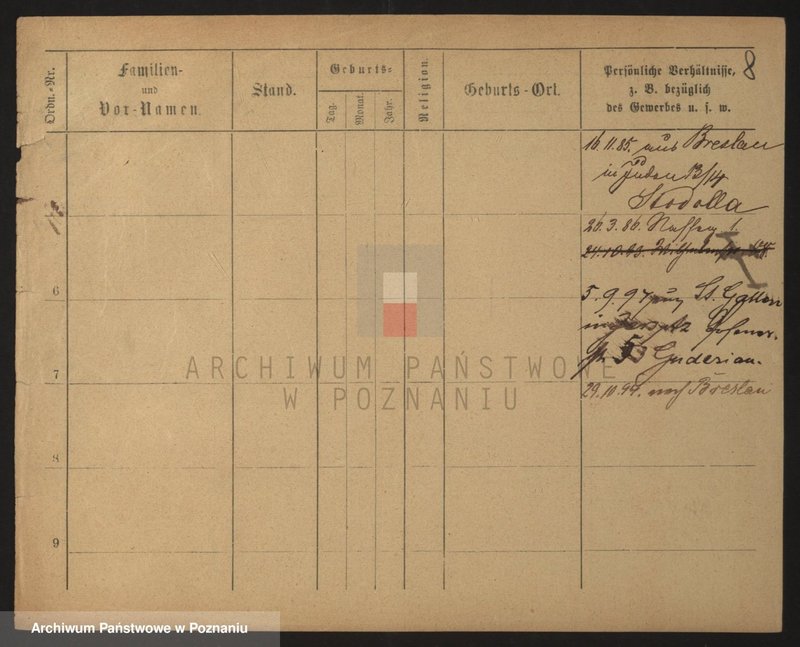 8
Ordn.-Nr.
Familien-
und
Vor-Namen.
Stand.
Geburts-
Tag.
Monat.
Jahr.
Religion.
Geburts-Ort.
Persönliche Verhältnisse,
z. B. bezüglich
des Gewerbes u. s. w.
16.11.85. aus Breslau
in Juden 13/14
Stodolla
26.3.86.
24.10.93.
6
5.9.97
53 Guderian.
7
29.10.97. nach Breslau
8
9
ARCHIWUM PAŃSTWOWE
W POZNANIU
Archiwum Państwowe w Poznaniu